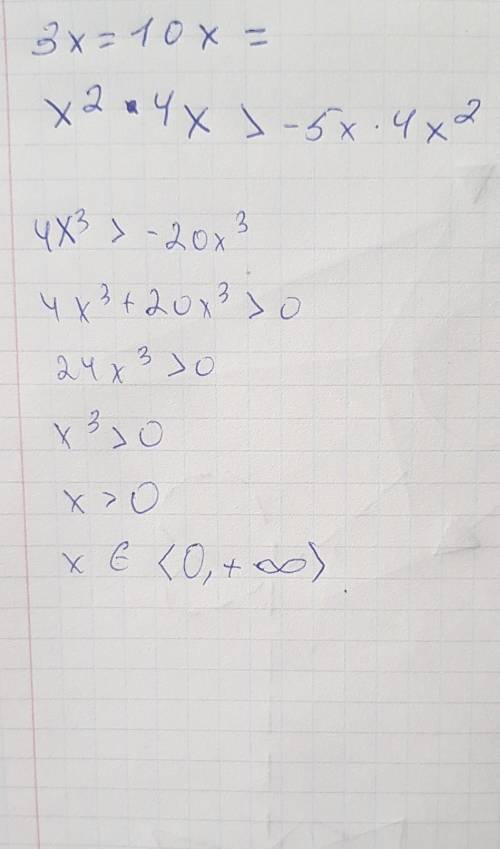 3x = 10x =
x² · 4x > -5x · 4x²
4x³ > -20x³
4x³ + 20x³ > 0
24x³ > 0
x³ > 0
x > 0
x ∈ ⟨0, +∞⟩